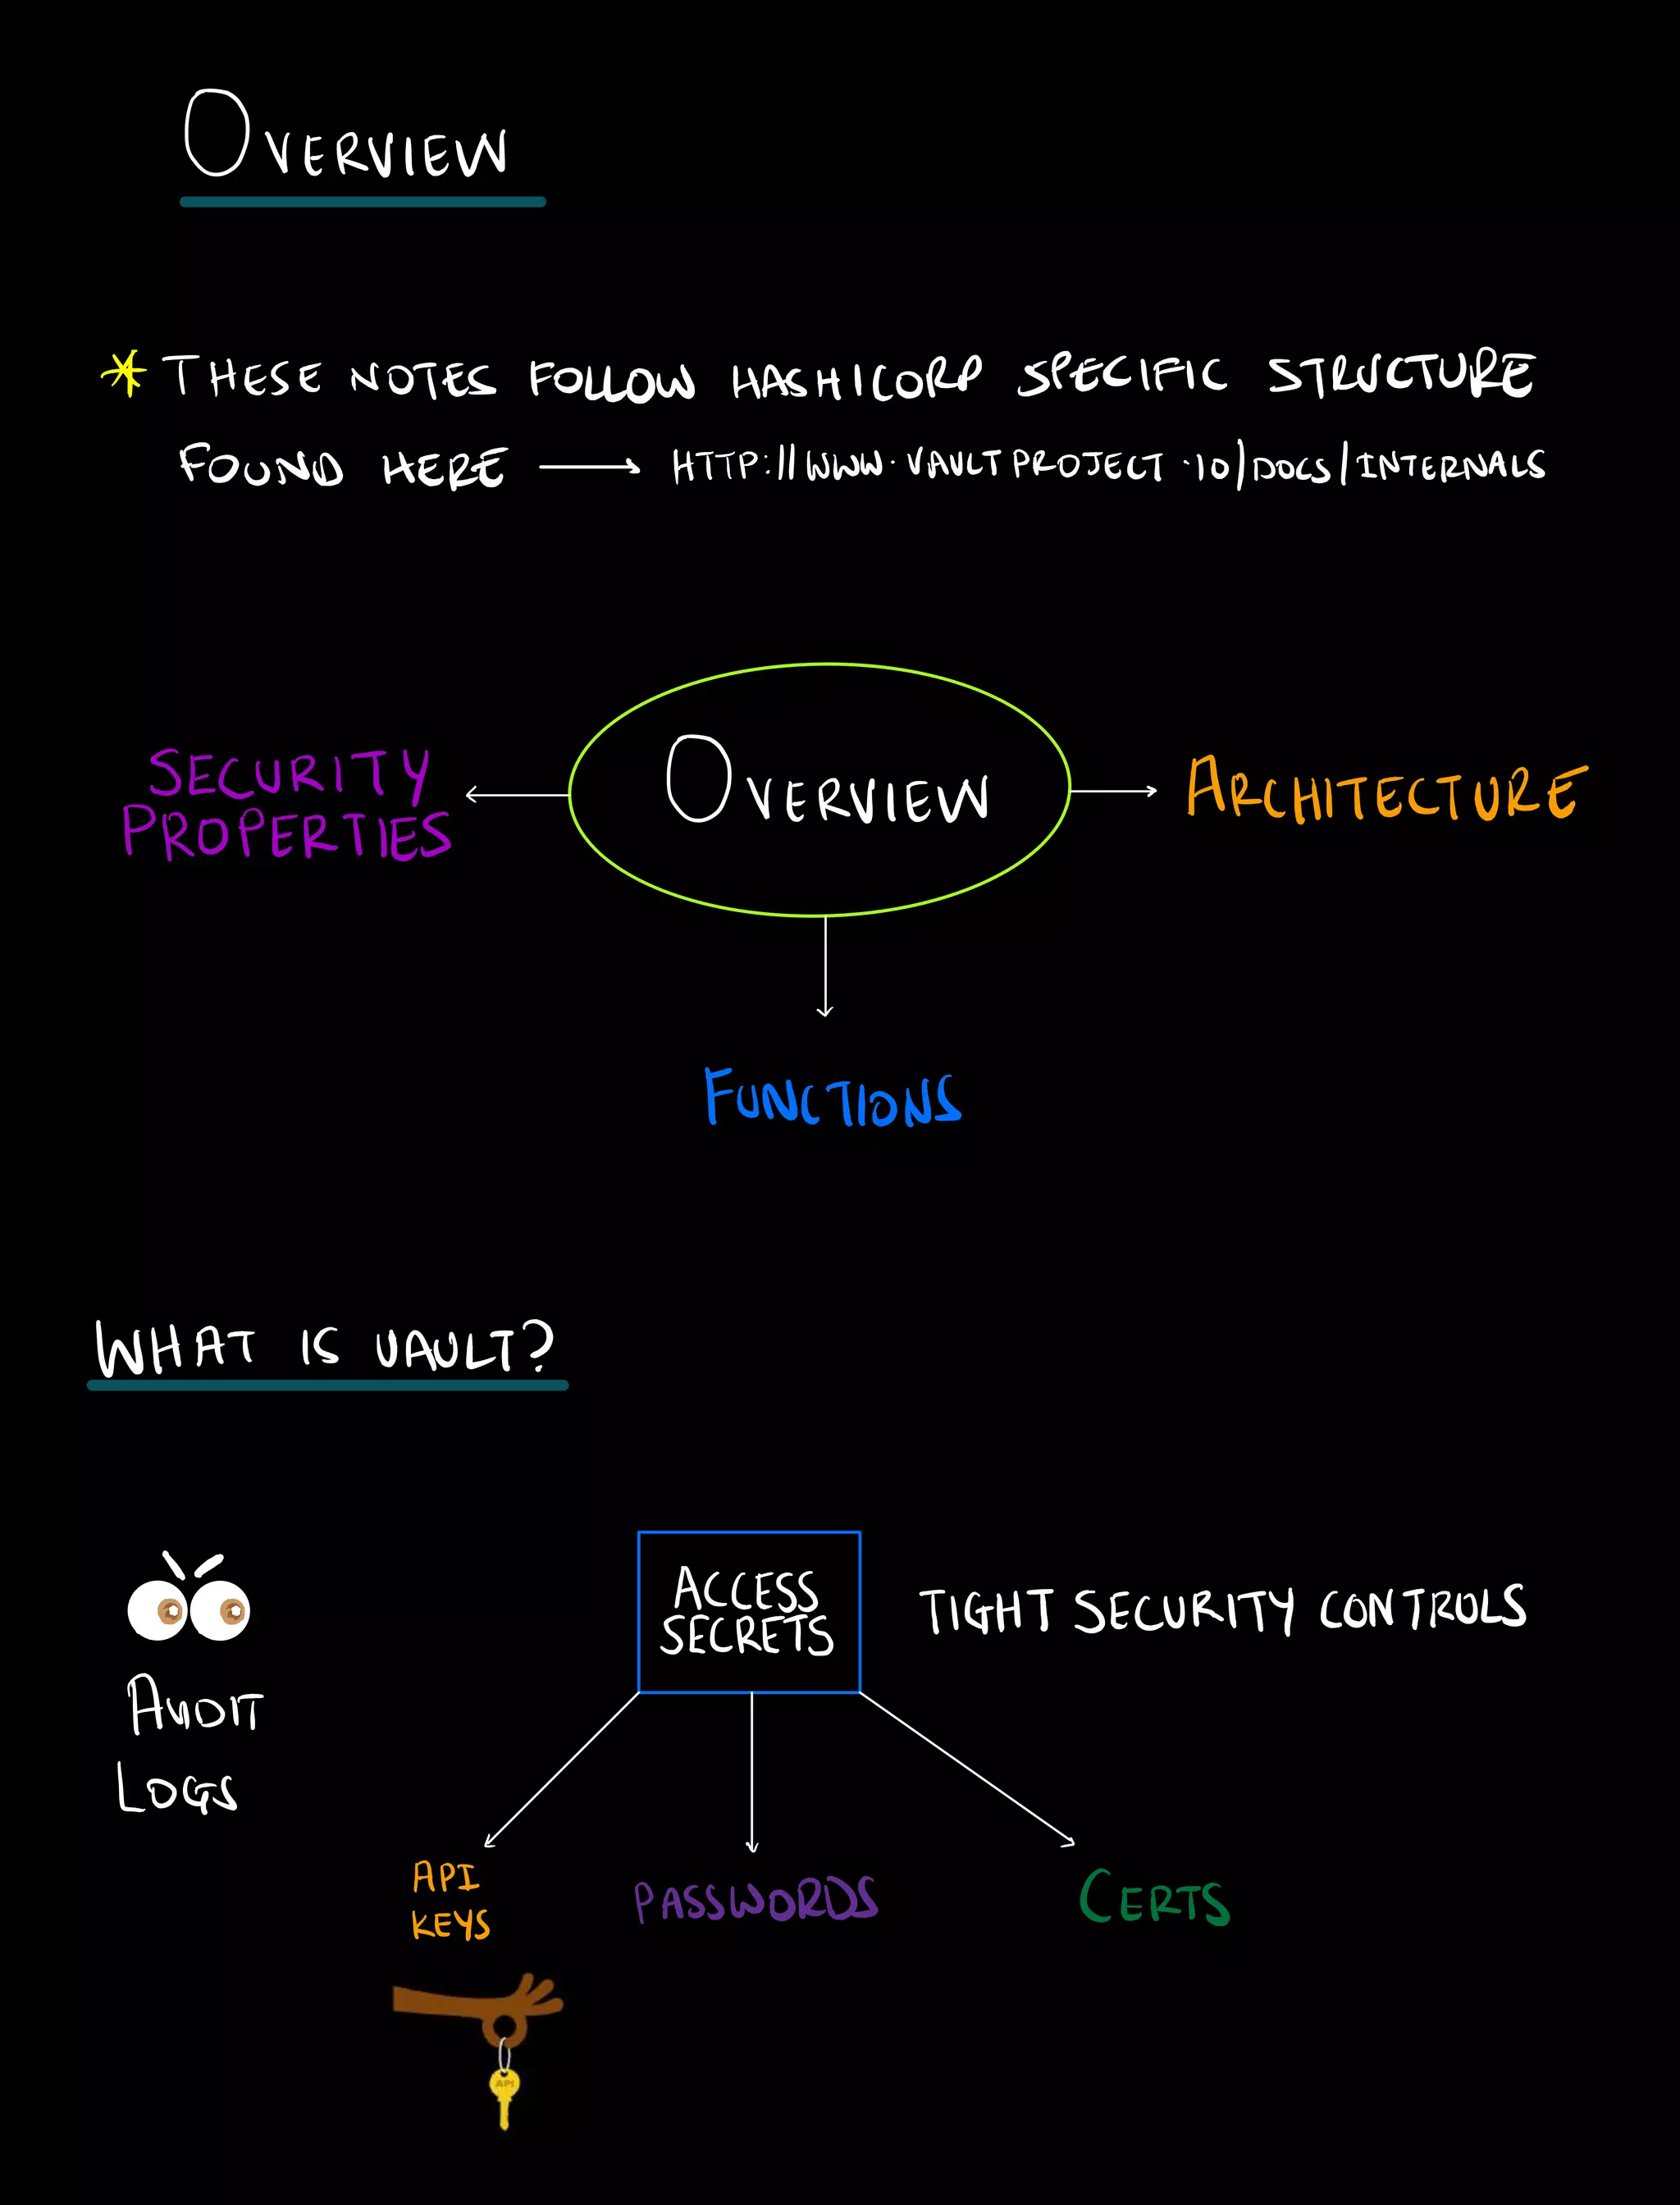 OVERVIEW
* THESE NOTES FOLLOW HASHICORP SPECIFIC STRUCTURE
FOUND HERE → HTTP://WWW.VAULTPROJECT.IO/DOCS/INTERNALS
SECURITY
PROPERTIES
OVERVIEW
ARCHITECTURE
FUNCTIONS
WHAT IS VAULT?
ACCESS
SECRETS
TIGHT SECURITY CONTROLS
AUDIT
LOGS
API
KEYS
PASSWORDS
CERTS
API